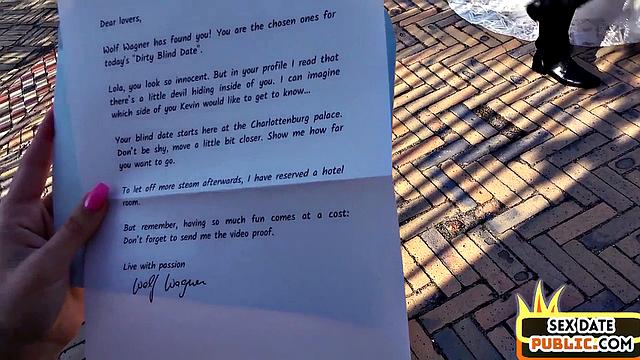 Dear lovers,
Wolf Wagner has found you! You are the chosen ones for
today's "Dirty Blind Date".
Lola, you look so innocent. But in your profile I read that
there's a little devil hiding inside of you. I can imagine
which side of you Kevin would like to get to know...
Your blind date starts here at the Charlottenburg palace.
Don't be shy, move a little bit closer. Show me how far
you want to go.
To let off more steam afterwards, I have reserved a hotel
room.
But remember, having so much fun comes at a cost:
Don't forget to send me the video proof.
Live with passion
Wolf Wagner
SEX DATE
PUBLIC.COM